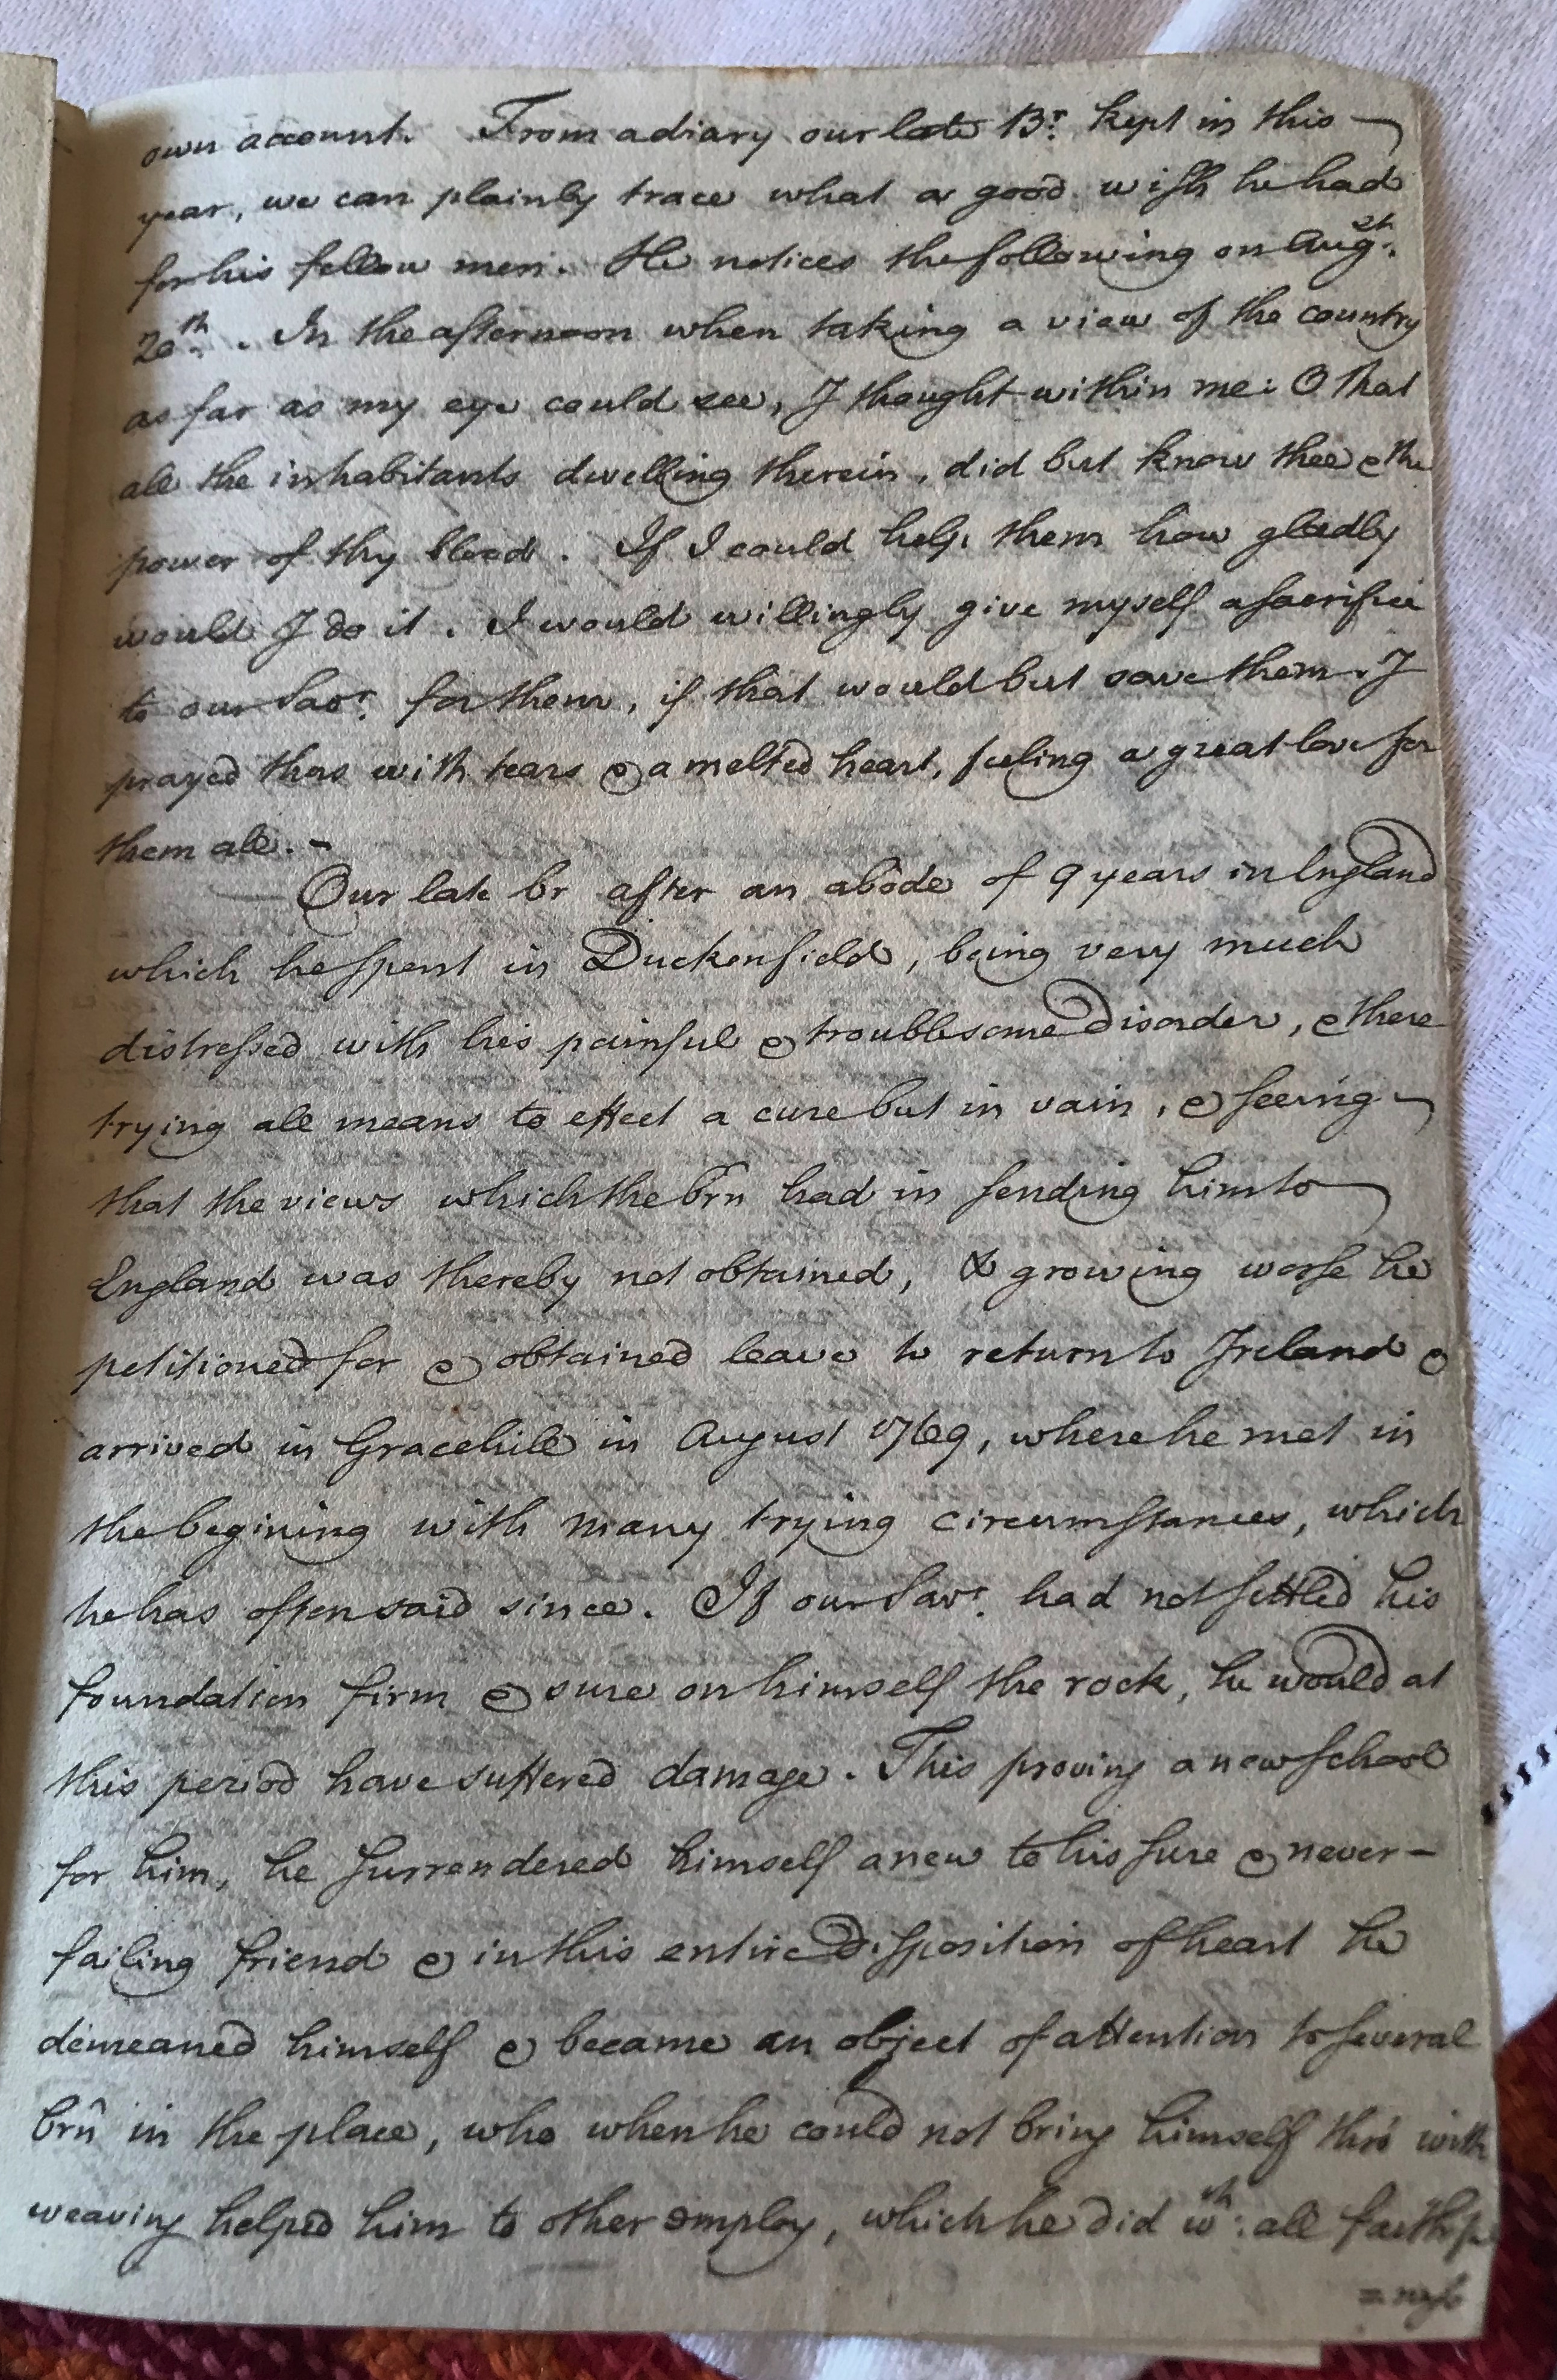 own account. From a diary our late Br. kept in this
year, we can plainly trace what a good wish he had
for his fellow men. He notices the following on Augst.
20th. . In the afternoon when taking a view of the country
as far as my eye could see, I thought within me: O that
all the inhabitants dwelling therein, did but know thee & the
power of thy blood. If I could help them how gladly
would I do it. I would willingly give myself a sacrifice
to our Savr. for them, if that would but save them. I
prayed thus with tears & a melted heart, feeling a great love for
them all. -
Our late br after an abode of 9 years in England
which he spent in Duckenfield, being very much
distressed with his painful & troublesome disorder, & there
trying all means to effect a cure but in vain, & seeing
that the views which the brn had in sending him to
England was thereby not obtained, & growing worse he
petitioned for & obtained leave to return to Ireland &
arrived in Gracehill in August 1769, where he met in
the begining with many trying circumstances, which
he has often said since. If our Savr. had not settled his
foundation firm & sure on himself the rock, he would at
this period have suffered damage. This proving a new school
for him, he surrendered himself anew to his sure & never-
failing friend & in this entire disposition of heart he
demeaned himself & became an object of attention to several
brn in the place, who when he could not bring himself thro with
weaving helped him to other employ, which he did wth: all faithful
=ness